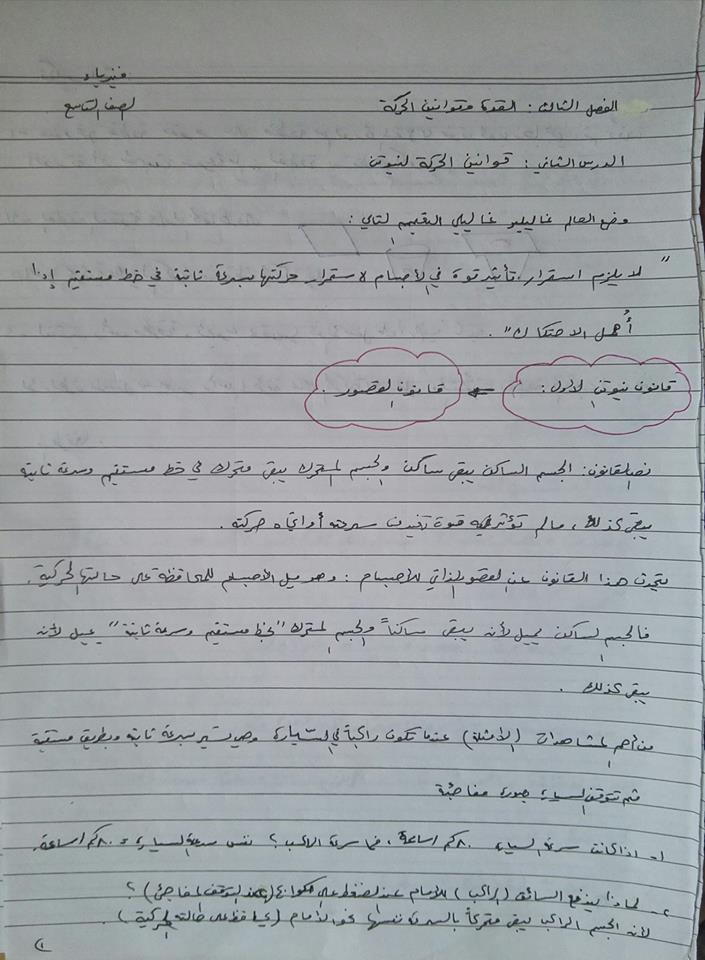 فيزياء
الفصل الثالث : القوة وقوانين الحركة الصف التاسع
الدرس الثاني : قوانين الحركة لنيوتن
وضع العالم غاليليو غاليلي التعميم التالي :
" لا يلزم استمرار تأثير قوة في الأجسام لاستمرار حركتها بسرعة ثابتة في خط مستقيم إذا
أُهمل الاحتكاك " .
قانون نيوتن الأول : قانون القصور .
نص القانون : الجسم الساكن يبقى ساكن والجسم المتحرك يبقى متحرك في خط مستقيم وسرعة ثابتة
يبقى كذلك ، مالم تؤثر فيه قوة تغير من سرعته أو اتجاه حركته .
يتحدث هذا القانون عن القصور الذاتي للأجسام : وهو ميل الأجسام للمحافظة على حالتها الحركية .
فالجسم الساكن يميل لأن يبقى ساكناً والجسم المتحرك " بخط مستقيم وسرعة ثابتة " يميل لأنه
يبقى كذلك .
من أهم المشاهدات ( الأمثلة ) عندما تكون راكباً في السيارة وهي تسير بسرعة ثابتة وبطريق مستقيمة
ثم تتوقف السيارة بصورة مفاجئة
١- اذا كانت سرعة السيارة ٨٠ كم / ساعة ، فما سرعة الراكب ؟ نفس سرعة السيارة = ٨٠ كم / ساعة .
٢- لماذا يندفع السائق ( الراكب ) للأمام عند الضغط على الكوابح ( عند التوقف المفاجئ ) ؟
لأنه الجسم الراكب يبقى متحركاً بالسرعة نفسها نحو الأمام ( يحافظ على حالته الحركية ) .
١